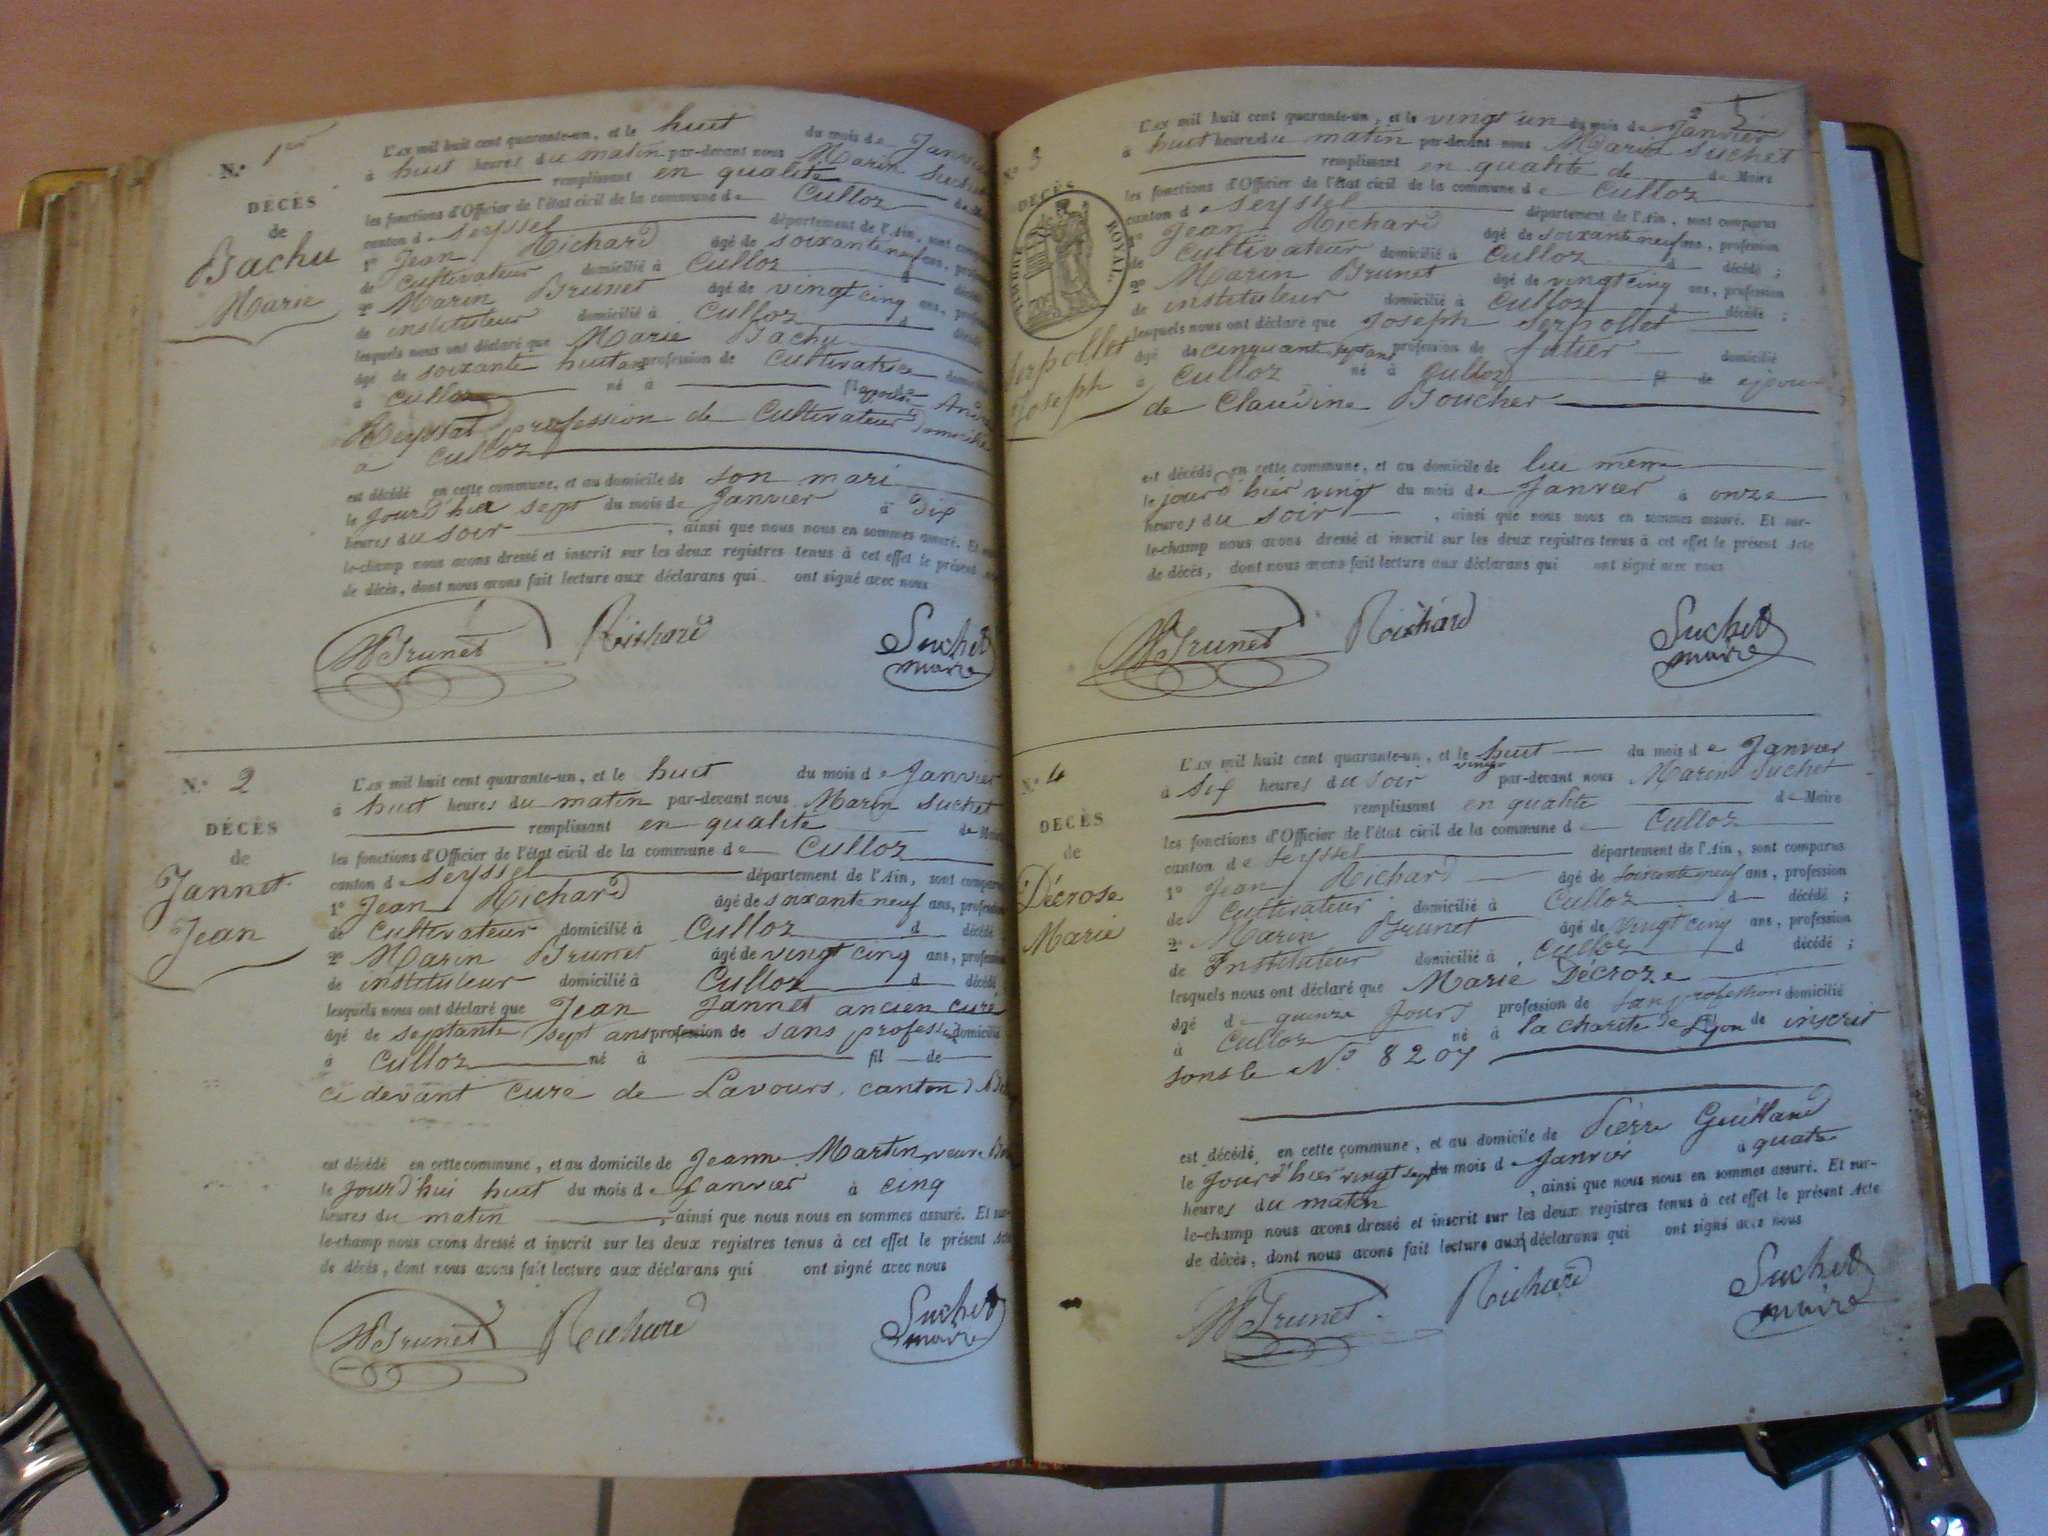 N.º 1er
DÉCÈS
de
Bachu
Marie
L'an mil huit cent quarante-un, et le huit du mois de Janvier
à huit heures du matin par-devant nous Marin Suchet
remplissant en qualité de Maire
les fonctions d'Officier de l'état civil de la commune de Culloz
canton de Seyssel département de l'Ain, sont comparus
1º Jean Richard âgé de soixante neuf ans, profession
de cultivateur domicilié à Culloz d décédé
2º Marin Brunet âgé de vingt cinq ans, profession
de instituteur domicilié à Culloz d décédé
lesquels nous ont déclaré que Marie Bachu
âgé de soixante huit ans profession de Cultivatrice domicilié
à Culloz né à
profession de Cultivateur domicilié
à Culloz
est décédé en cette commune, et au domicile de son mari
le jourd'hier sept du mois de Janvier à dix
heures du soir, ainsi que nous nous en sommes assuré. Et
le-champ nous avons dressé et inscrit sur les deux registres tenus à cet effet le présent
de décès, dont nous avons fait lecture aux déclarans qui ont signé avec nous
MBrunet Richard Suchet
maire
N.º 2
DÉCÈS
de
Jannet
Jean
L'an mil huit cent quarante-un, et le huit du mois de Janvier
à huit heures du matin par-devant nous Marin Suchet
remplissant en qualité de Maire
les fonctions d'Officier de l'état civil de la commune de Culloz
canton de Seyssel département de l'Ain, sont comparus
1º Jean Richard âgé de soixante neuf ans, profession
de Cultivateur domicilié à Culloz d décédé
2º Marin Brunet âgé de vingt cinq ans, profession
de instituteur domicilié à Culloz d décédé
lesquels nous ont déclaré que Jean Jannet ancien curé
âgé de septante sept ans profession de sans profession domicilié
à Culloz né à fil de
ci devant curé de Lavours, canton d
est décédé en cette commune, et au domicile de Jeanne Martin veuve
le jourd'hui huit du mois de Janvier à cinq
heures du matin, ainsi que nous nous en sommes assuré. Et sur-
le-champ nous avons dressé et inscrit sur les deux registres tenus à cet effet le présent Acte
de décès, dont nous avons fait lecture aux déclarans qui ont signé avec nous
MBrunet Richard Suchet
maire
N.º 3
DÉCÈS
TIMBRE ROYAL.
Serpollet
Joseph
L'an mil huit cent quarante-un, et le vingt un du mois de Janvier
à huit heures du matin par-devant nous Marin Suchet
remplissant en qualité de de Maire
les fonctions d'Officier de l'état civil de la commune de Culloz
canton de Seyssel département de l'Ain, sont comparus
1º Jean Richard âgé de soixante neuf ans, profession
de Cultivateur domicilié à Culloz d décédé ;
2º Marin Brunet âgé de vingt cinq ans, profession
de instituteur domicilié à Culloz d décédé ;
lesquels nous ont déclaré que Joseph Serpollet
âgé de cinquante sept ans profession de domicilié
à Culloz né à Culloz fil de époux
de Claudine Boucher
est décédé en cette commune, et au domicile de lui même
le jourd'hier vingt du mois de Janvier à onze
heures du soir, ainsi que nous nous en sommes assuré. Et sur-
le-champ nous avons dressé et inscrit sur les deux registres tenus à cet effet le présent Acte
de décès, dont nous avons fait lecture aux déclarans qui ont signé avec nous
MBrunet Richard Suchet
maire
N.º 4
DÉCÈS
de
Décrose
Marie
L'an mil huit cent quarante-un, et le vingt huit du mois de Janvier
à six heures du soir par-devant nous Marin Suchet
remplissant en qualité de Maire
les fonctions d'Officier de l'état civil de la commune de Culloz
canton de Seyssel département de l'Ain, sont comparus
1º Jean Richard âgé de soixante neuf ans, profession
de Cultivateur domicilié à Culloz d décédé ;
2º Marin Brunet âgé de vingt cinq ans, profession
de Instituteur domicilié à Culloz d décédé ;
lesquels nous ont déclaré que Marie Décroze
âgé de quinze jours profession de sans profession domicilié
à Culloz né à la charité de Lyon fil de inscrit
sous le N.º 8207
est décédé en cette commune, et au domicile de Pierre Guilland
le jourd'hier vingt sept du mois de Janvier à quatre
heures du matin, ainsi que nous nous en sommes assuré. Et sur-
le-champ nous avons dressé et inscrit sur les deux registres tenus à cet effet le présent Acte
de décès, dont nous avons fait lecture aux déclarans qui ont signé avec nous
MBrunet. Richard Suchet
maire